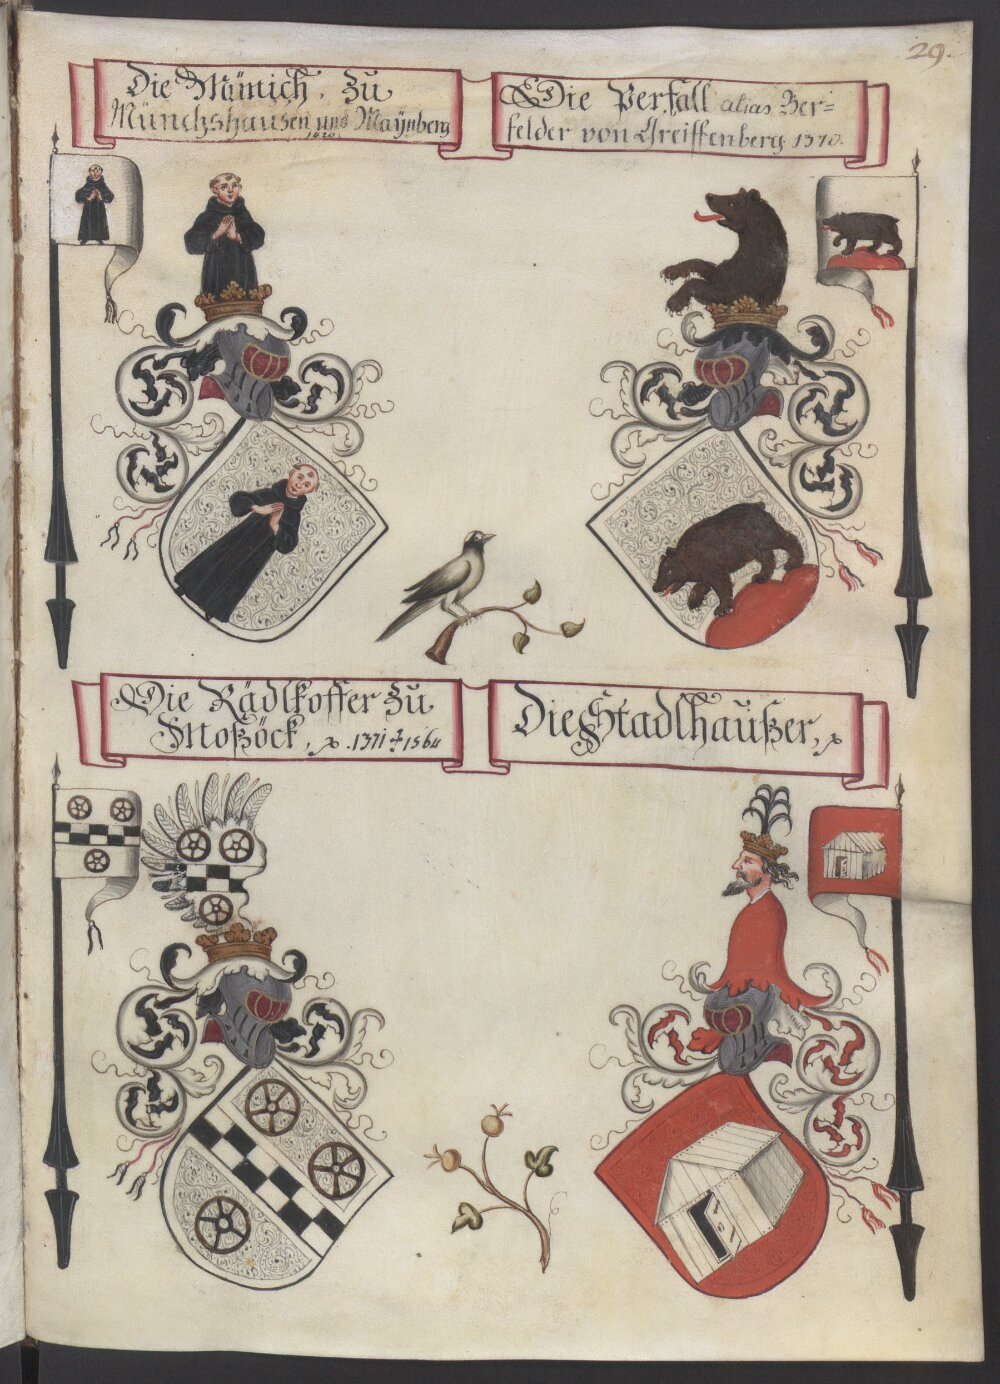 29.
Die Münich, zu
Münchshausen und Maÿnberg
1420
Die Perfall alias Ber=
felder von Greiffenberg 1370.
Die Rädlkoffer zu
Moßöck, 1371 1564
Die Stadlhaußer,